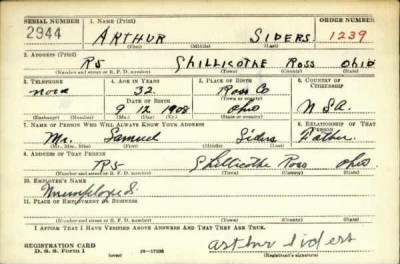 SERIAL NUMBER 1. NAME (Print) ORDER NUMBER
2944 ARTHUR SIDERS 1239
(First) (Middle) (Last)
2. ADDRESS (Print)
R5 Chillicothe Ross Ohio
(Number and street or R. F. D. number) (Town) (County) (State)
3. TELEPHONE 4. AGE IN YEARS 5. PLACE OF BIRTH 6. COUNTRY OF CITIZENSHIP
none 32 Ross Co
DATE OF BIRTH (Town or county)
9 12 1908 Ohio U S A
(Exchange) (Number) (Mo.) (Day) (Yr.) (State or country)
7. NAME OF PERSON WHO WILL ALWAYS KNOW YOUR ADDRESS 8. RELATIONSHIP OF THAT PERSON
Mr. Samuel Siders Father
(Mr., Mrs., Miss) (First) (Middle) (Last)
9. ADDRESS OF THAT PERSON
R5 Chillicothe Ross Ohio
(Number and street or R. F. D. number) (Town) (County) (State)
10. EMPLOYER'S NAME
Unemployed
11. PLACE OF EMPLOYMENT OR BUSINESS
(Number and street or R. F. D. number) (Town) (County) (State)
I AFFIRM THAT I HAVE VERIFIED ABOVE ANSWERS AND THAT THEY ARE TRUE.
REGISTRATION CARD
D. S. S. Form 1 (over) 16—17105 arthur siders
(Registrant's signature)